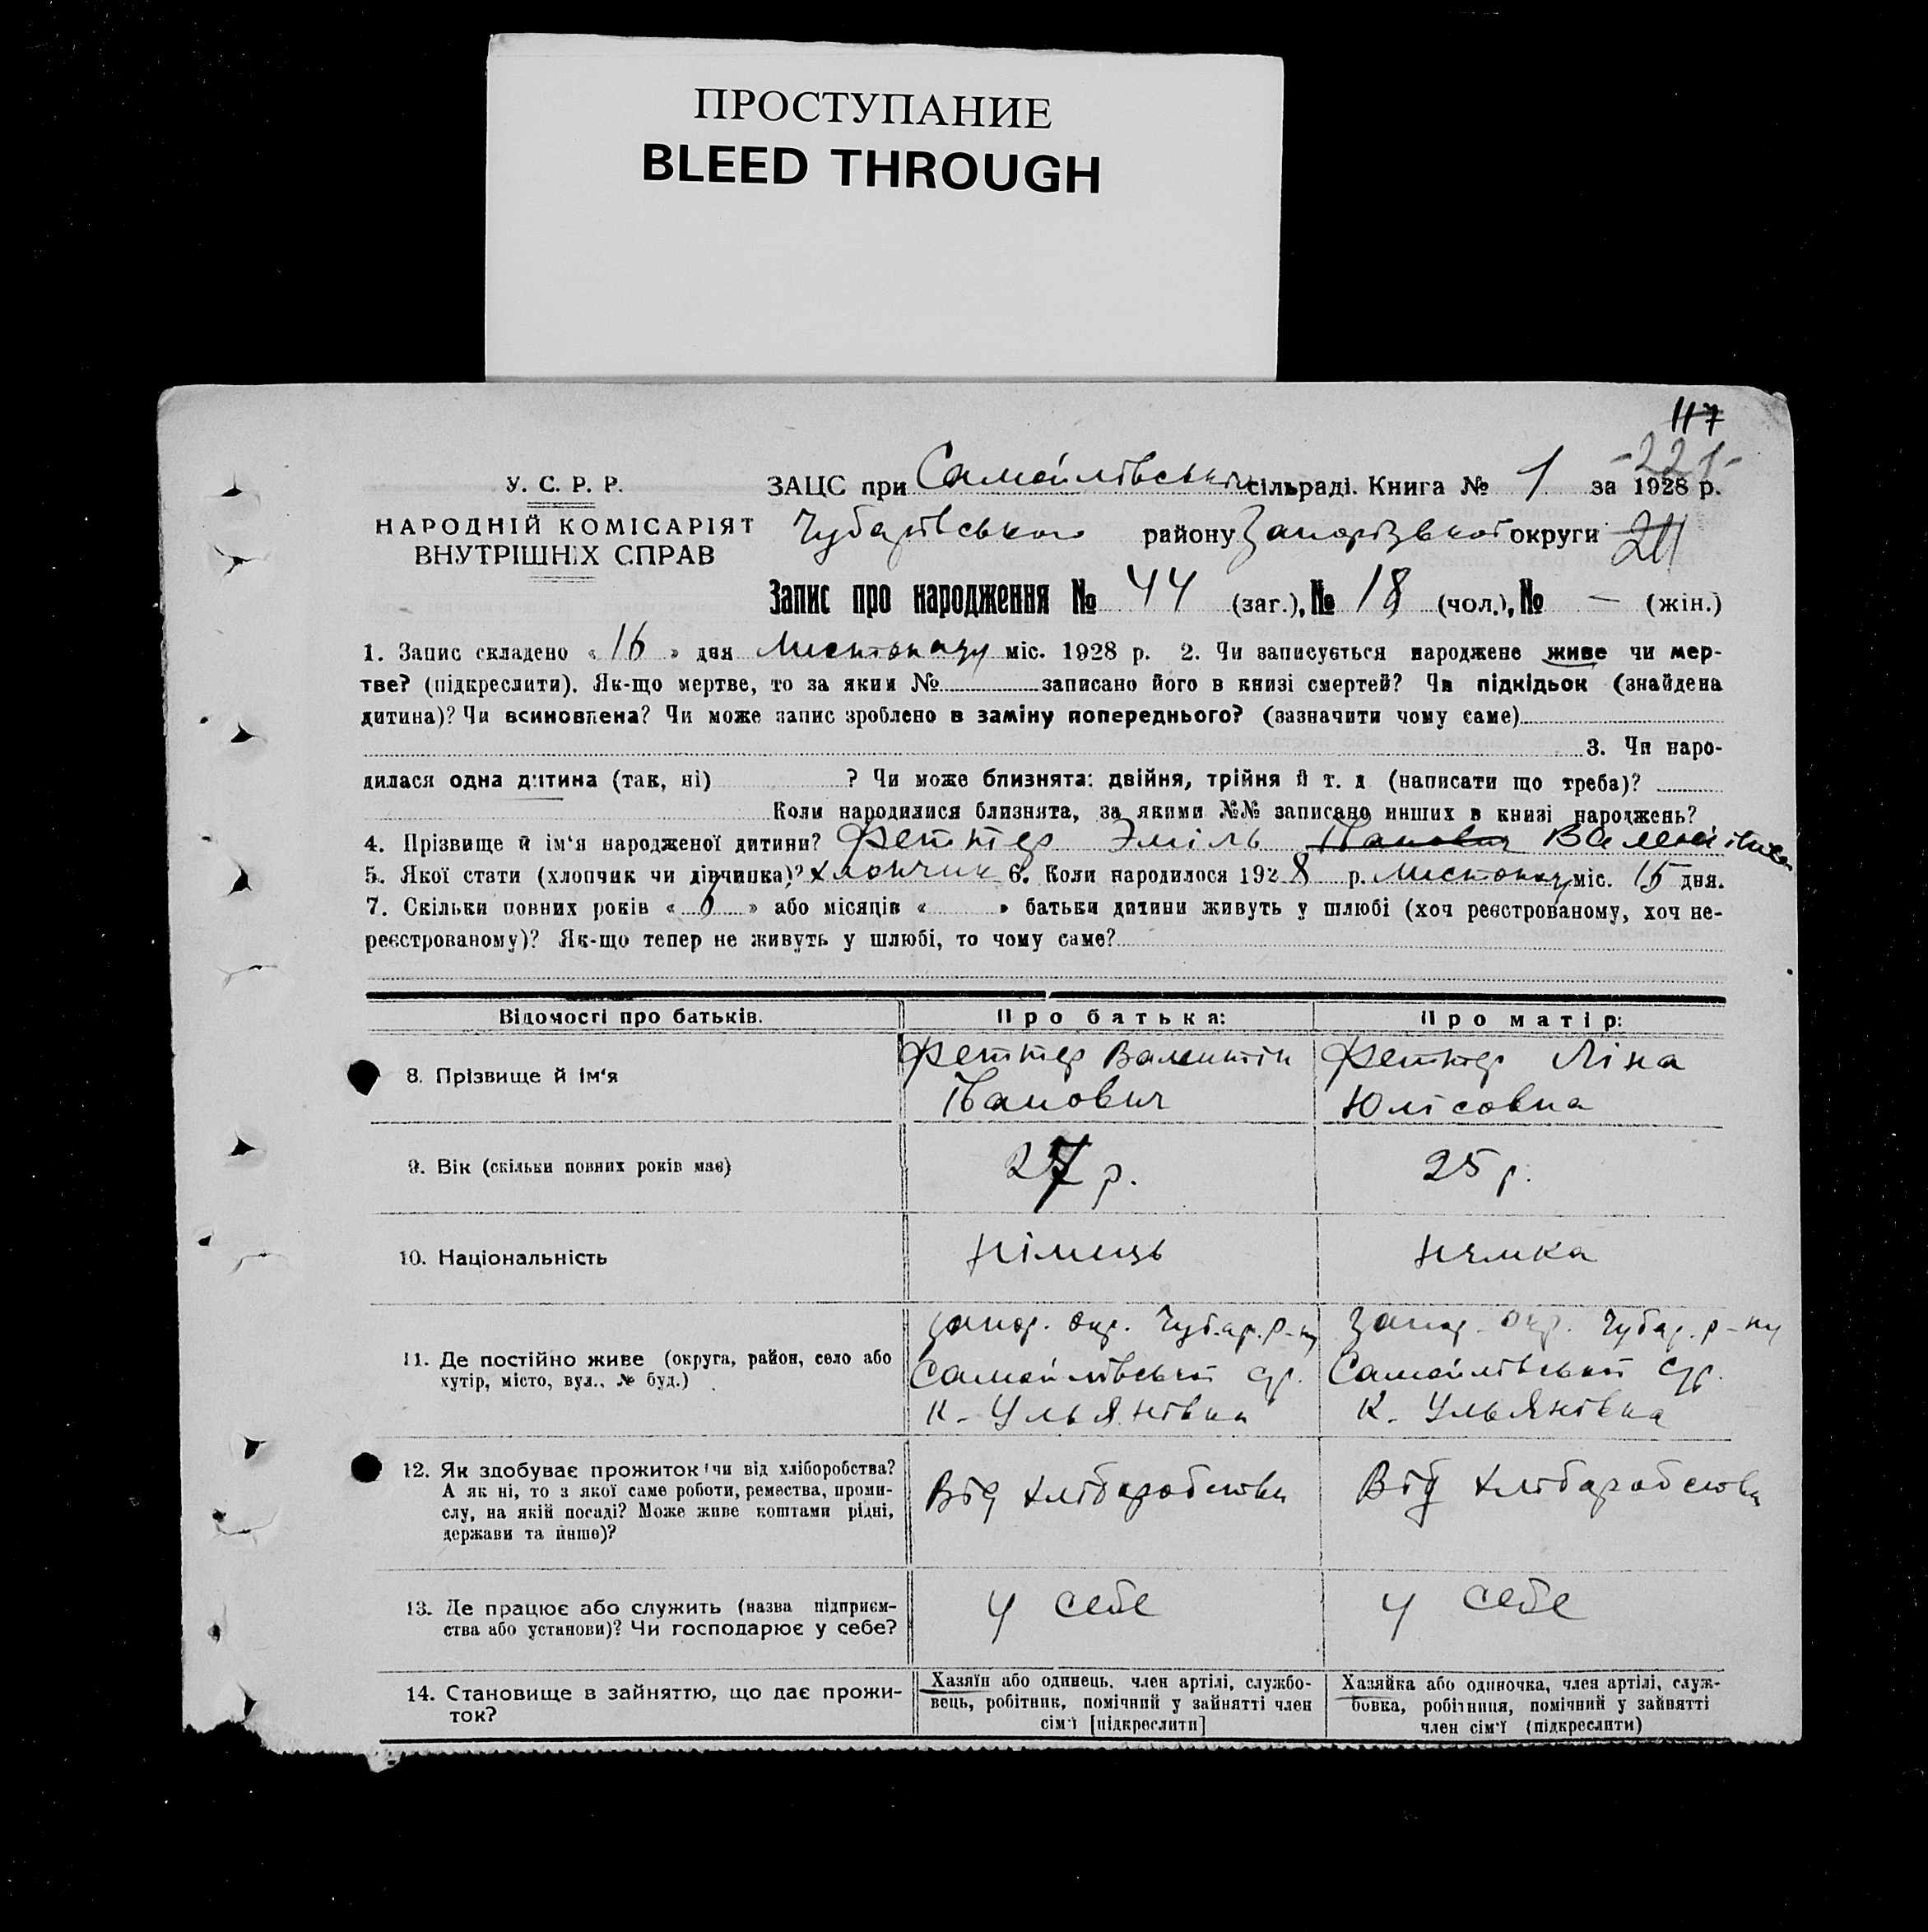 ПРОСТУПАНИЕ
BLEED THROUGH
117
-221-
У. С. Р. Р.
НАРОДНІЙ КОМІСАРІЯТ
ВНУТРІШНІХ СПРАВ
ЗАЦС при Самойлівській сільраді. Книга № 1 за 1928 р.
Чубарівського району Запорізької округи
Запис про народження № 44 (заг.), № 18 (чол.), № — (жін.)
1. Запис складено « 16 » дня Листопаду міс. 1928 р. 2. Чи записується народжене живе чи мер-
тве? (підкреслити). Як-що мертве, то за яким № записано його в книзі смертей? Чи підкідьок (знайдена
дитина)? Чи всиновлена? Чи може запис зроблено в заміну попереднього? (зазначити чому саме)
3. Чи наро-
дилася одна дитина (так, ні) ? Чи може близнята: двійня, трійня й т. д (написати що треба)?
Коли народилися близнята, за якими №№ записано инших в книзі народжень?
4. Прізвище й ім'я народженої дитини? Феттер Эміль Іванович
5. Якої стати (хлопчик чи дівчинка)? хлопчик 6. Коли народилося 1928 р. Листопаду міс. 15 дня.
7. Скільки повних років « » або місяців « » батьки дитини живуть у шлюбі (хоч реєстрованому, хоч не-
реєстрованому)? Як-що тепер не живуть у шлюбі, то чому саме?
Відомості про батьків.
Про батька:
Про матір:
8. Прізвище й ім'я
Феттер Валентін
Іванович
Феттер Ліна
Юлісовна
9. Вік (скільки повних років має)
27 р.
25 р.
10. Національність
Німець
Нямка
11. Де постійно живе (округа, район, село або
хутір, місто, вул., № буд.)
Запор. окр. Чубар. р-ну
Самойлівської с/р.
К. Ульянівка
Запор. окр. Чубар. р-ну
Самойлівської с/р.
К. Ульянівка
12. Як здобуває прожиток: чи від хліборобства?
А як ні, то з якої саме роботи, ремества, проми-
слу, на якій посаді? Може живе коштами рідні,
держави та инше)?
Від хліборобства
Від хліборобства
13. Де працює або служить (назва підприєм-
ства або установи)? Чи господарює у себе?
У себе
У себе
14. Становище в зайняттю, що дає прожи-
ток?
Хазяїн або одинець, член артілі, службо-
вець, робітник, помічний у зайнятті член
сім'ї [підкреслити]
Хазяйка або одиночка, член артілі, служ-
бовка, робітниця, помічний у зайнятті
член сім'ї (підкреслити)